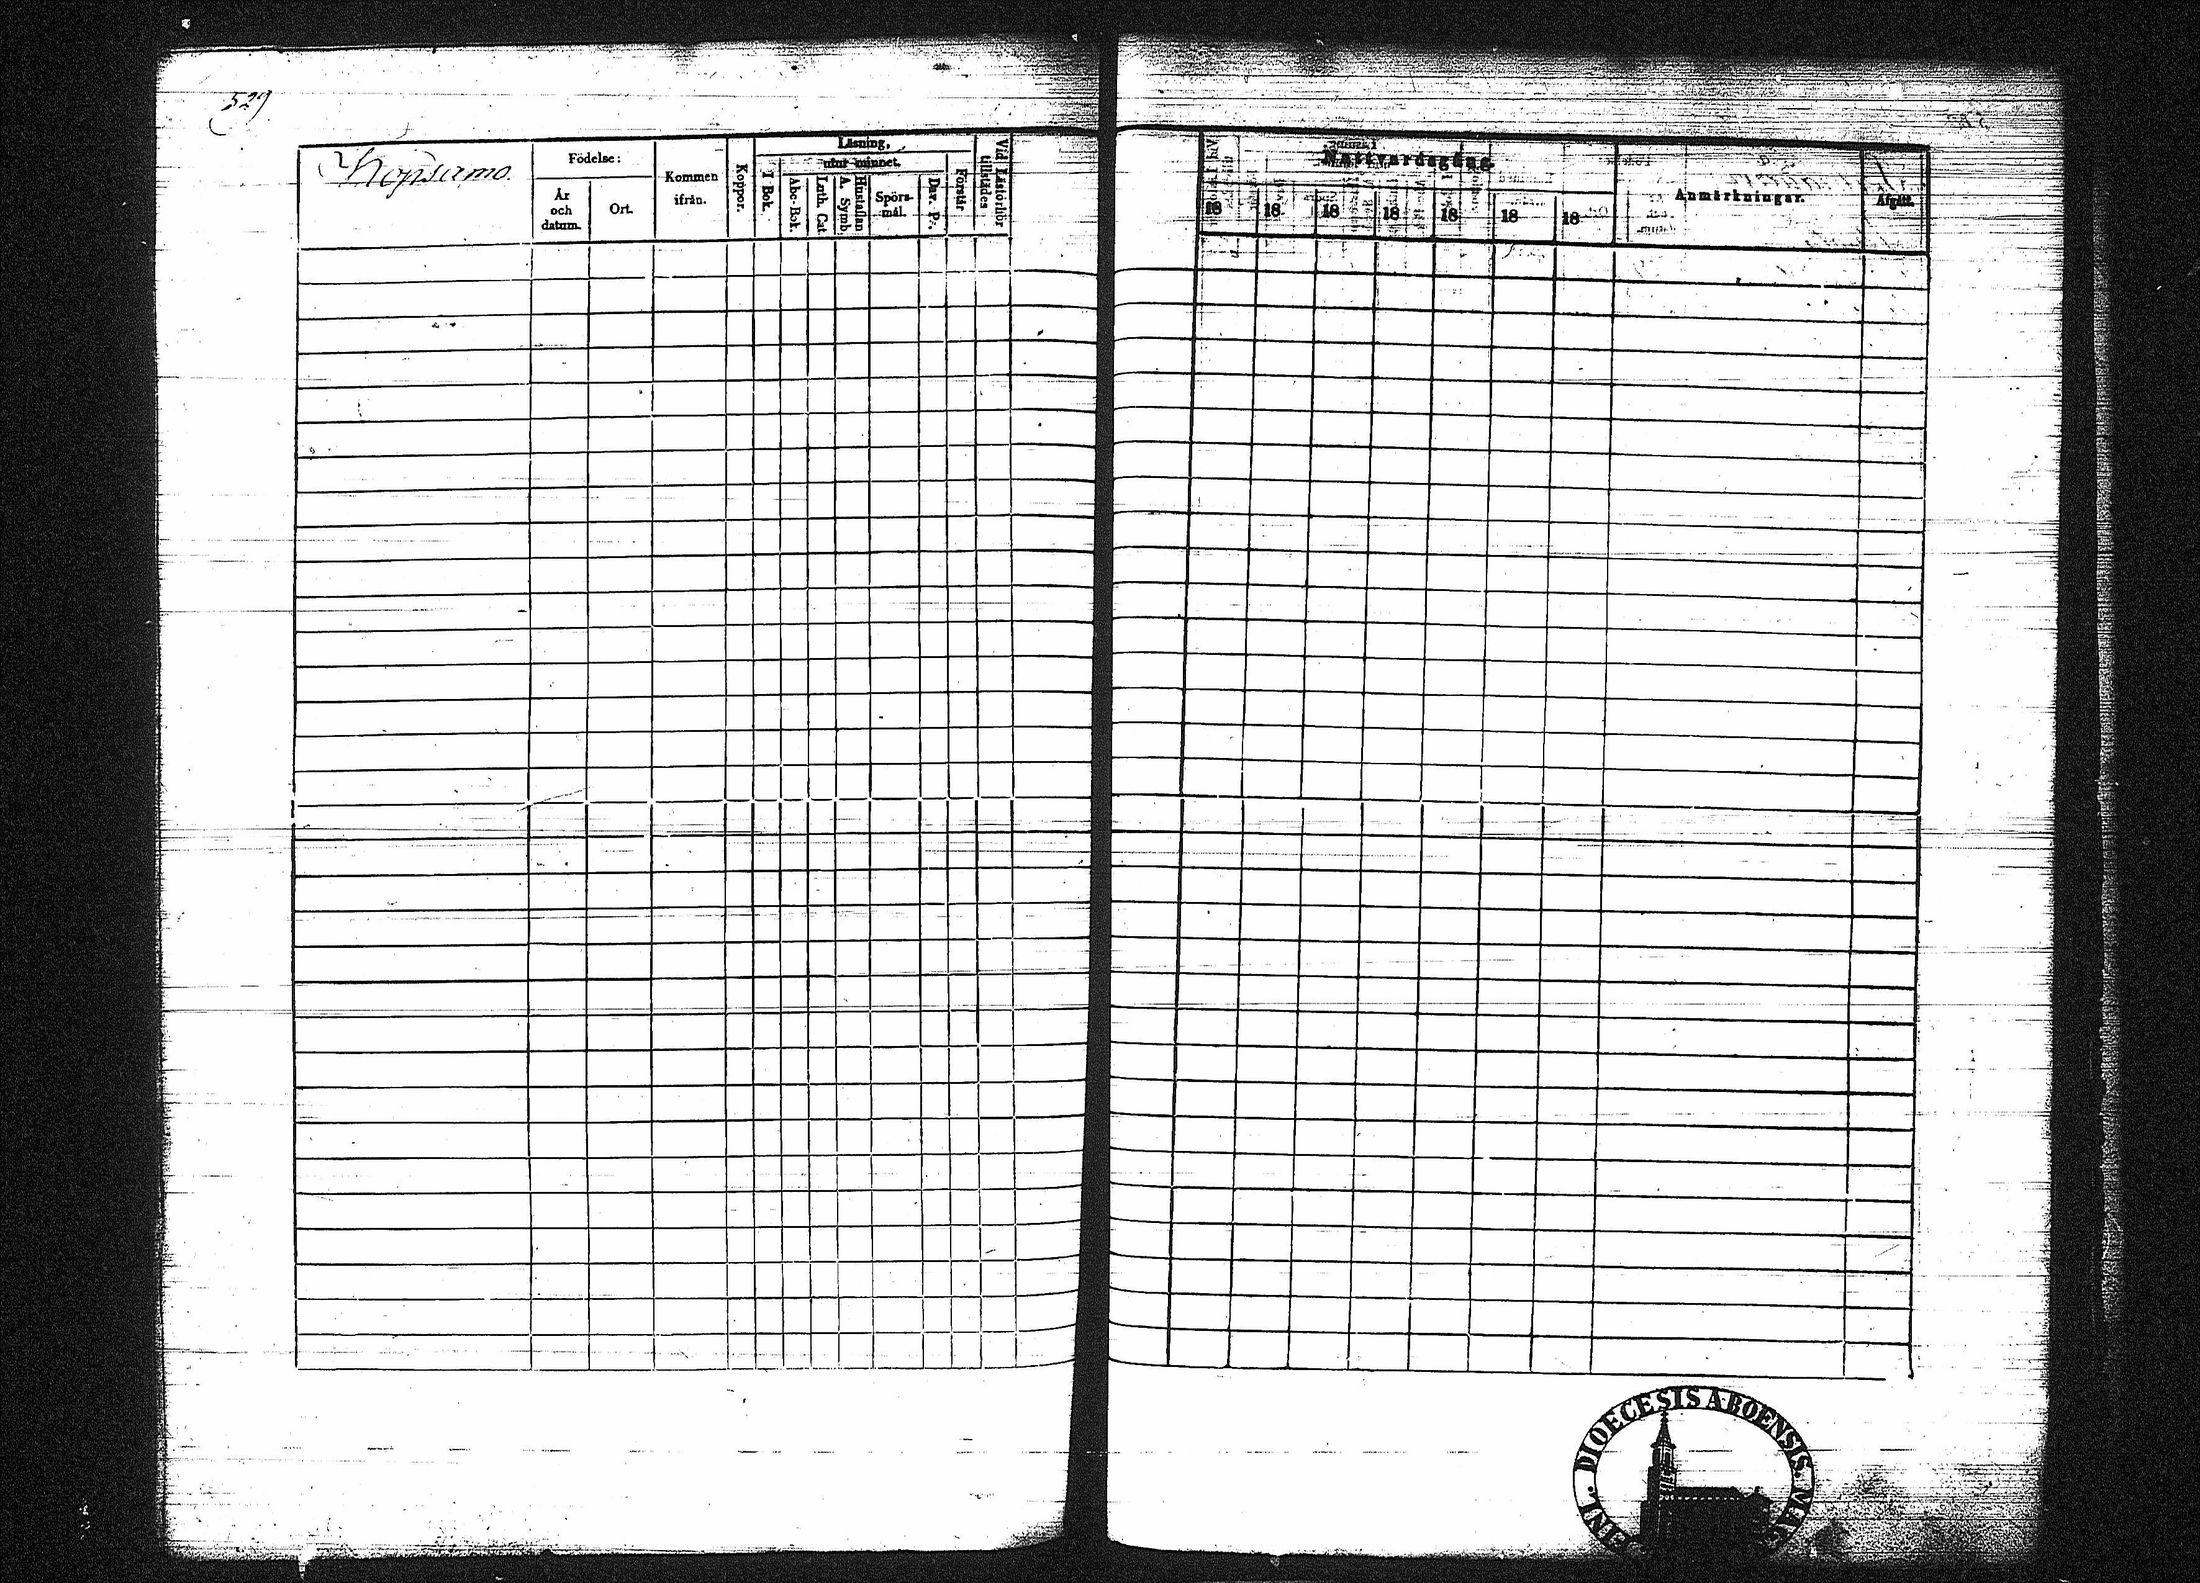 529
Kopsamo
Födelse:
År
och
datum.
Ort.
Kommen
ifrån.
Koppor.
Läsning,
utur minnet.
I Bok.
Abc-Bok.
Luth. Cat.
Hustaflan
A. Symb.
Spörs-
mål.
Dav. Ps.
Förstår
Vid Läsförhör
tillstädes
Nattvardsgång.
18 18 18 18 18 18 18
Anmärkningar.
Afgått.
DIOECESIS ABOENSIS. MAG